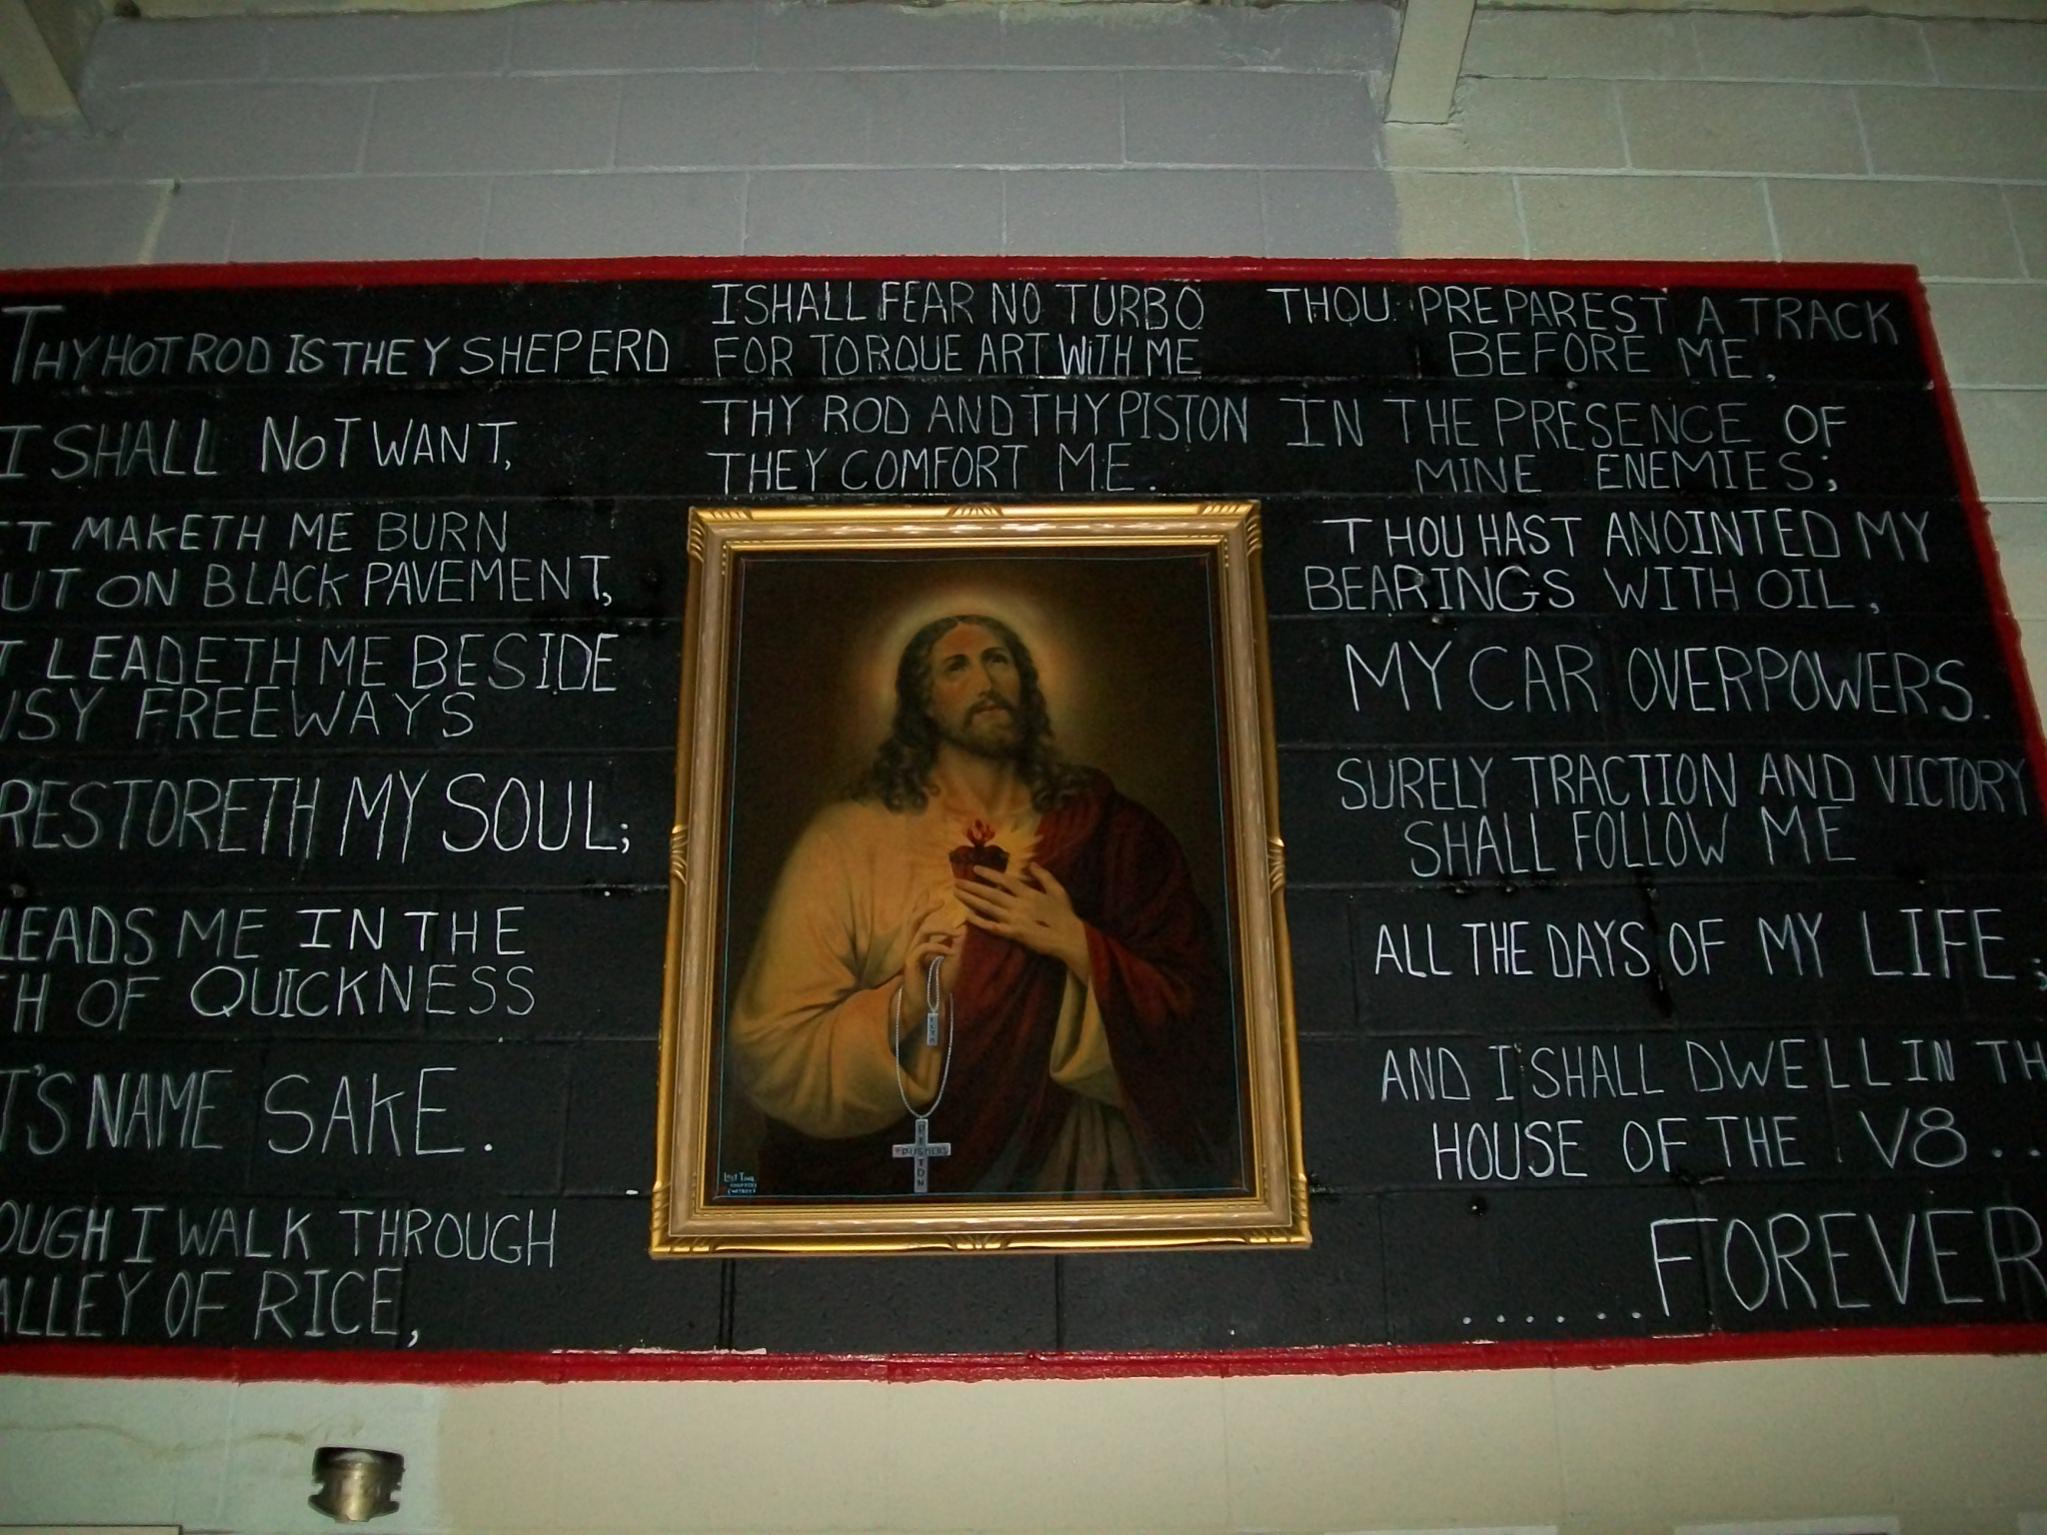 THY HOT ROD IS THEY SHEPERD
I SHALL NOT WANT,
MAKETH ME BURN
UT ON BLACK PAVEMENT,
LEADETH ME BESIDE
FREEWAYS
RESTORETH MY SOUL;
LEADS ME IN THE
H OF QUICKNESS
T'S NAME SAKE.
OUGH I WALK THROUGH
ALLEY OF RICE,
I SHALL FEAR NO TURBO
FOR TORQUE ART WITH ME
THY ROD AND THY PISTON
THEY COMFORT ME.
THOU PREPAREST A TRACK
BEFORE ME,
IN THE PRESENCE OF
MINE ENEMIES;
THOU HAST ANOINTED MY
BEARINGS WITH OIL,
MY CAR OVERPOWERS.
SURELY TRACTION AND VICTORY
SHALL FOLLOW ME
ALL THE DAYS OF MY LIFE;
AND I SHALL DWELL IN TH
HOUSE OF THE V8..
.......FOREVER
PISTON
PUSHERS